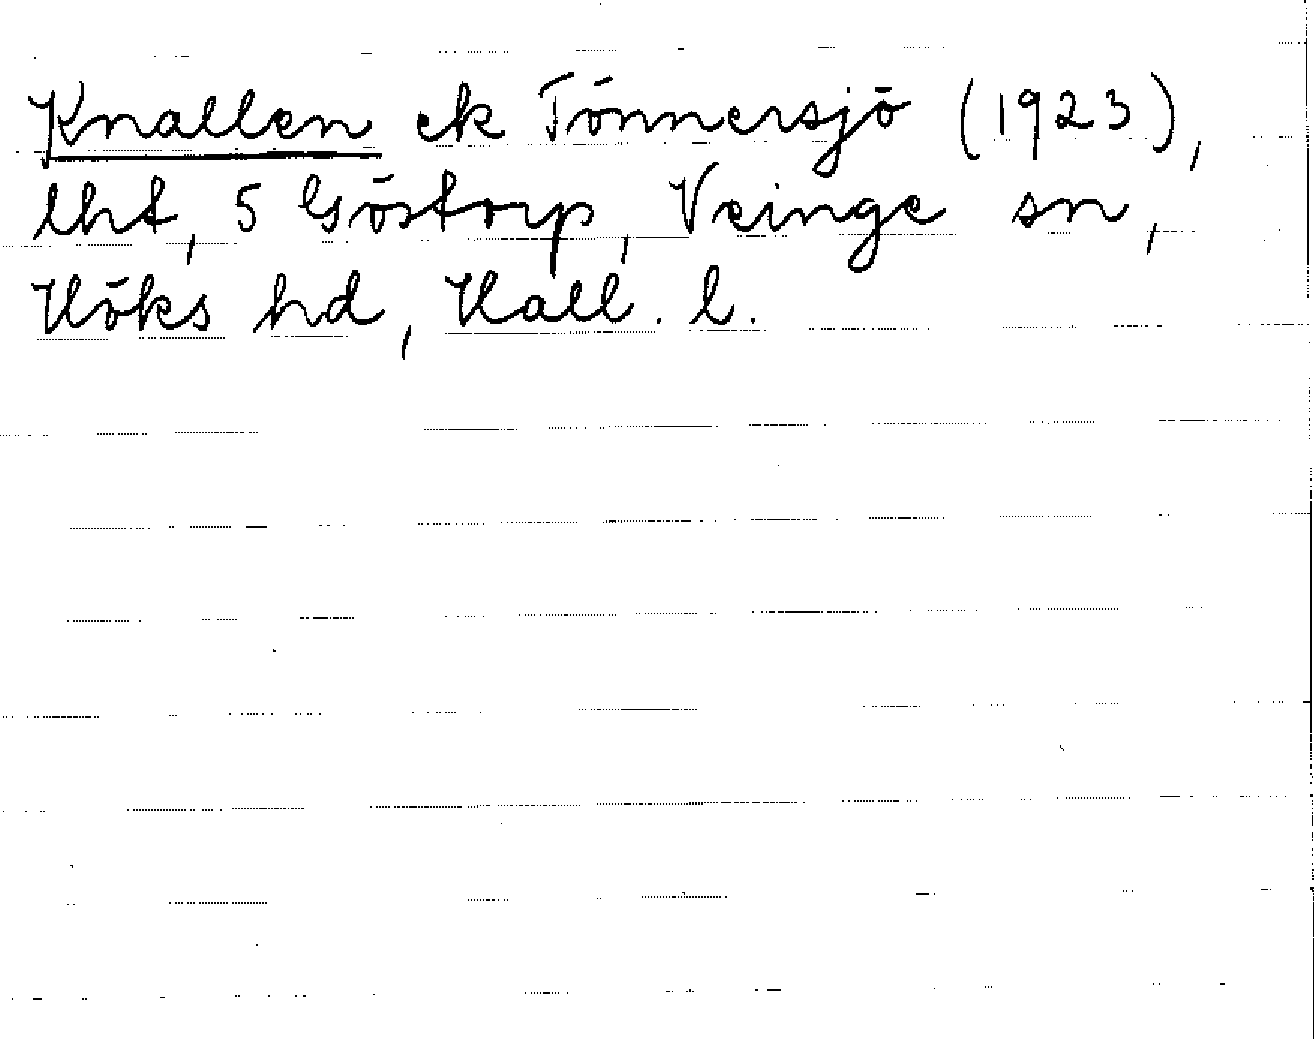 Knallen ek Tönnersjö (1923),
lht, 5 Göstorp, Veinge sn,
Höks hd, Hall. l.